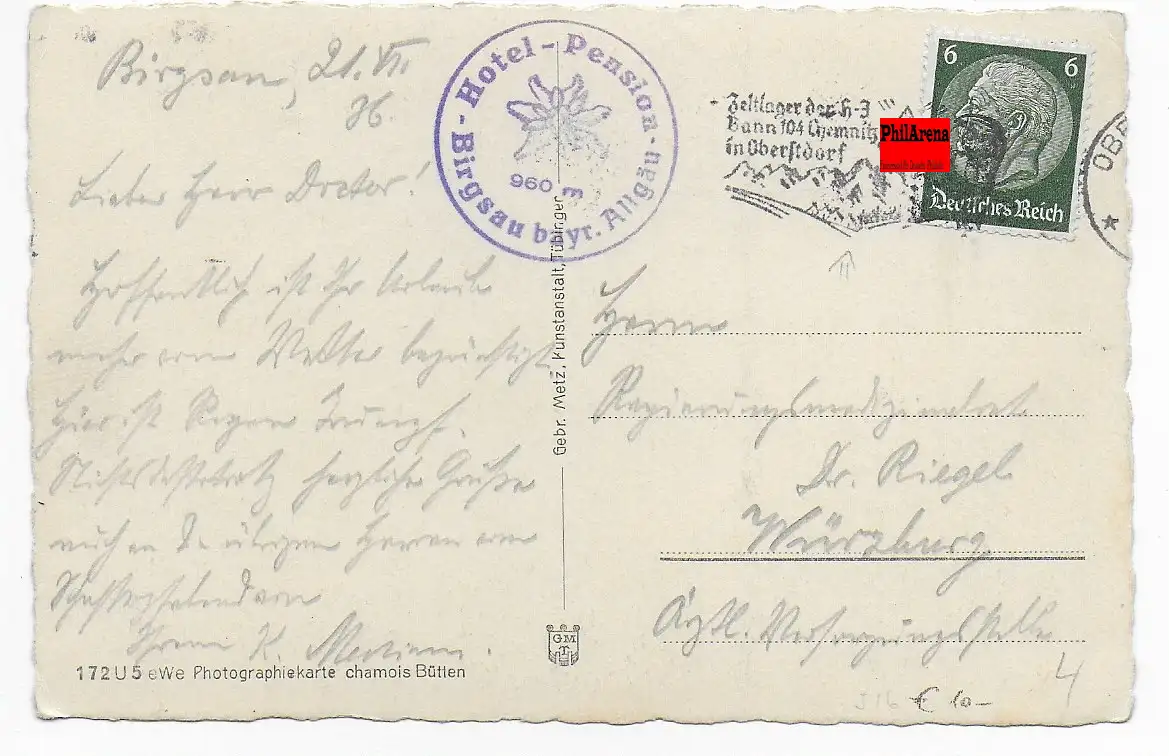 Birgsau, 21. VII
36.
Lieber Herr Doctor!
Hoffentlich ist Ihr Urlaub
mehr vom Wetter begünstigt.
Hier ist Regen Trumpf.
Nichtsdestotrotz herzliche Grüße
auch an die übrigen Herren vom
Ihrem K.
172 U 5 eWe Photographiekarte chamois Bütten
Hotel-Pension
Birgsau bayr. Allgäu
960 m
Gebr. Metz, Kunstanstalt, Tübingen
GM
T
Zeltlager der H-J
Bann 104 Chemnitz
in Oberstdorf
PhilArena
6 6
Deutsches Reich
OBE
Herrn
Regierungsmedizinalrat
Dr. Riegel
Würzburg
Ärztl. Versorgungsstelle
4
€ 10-